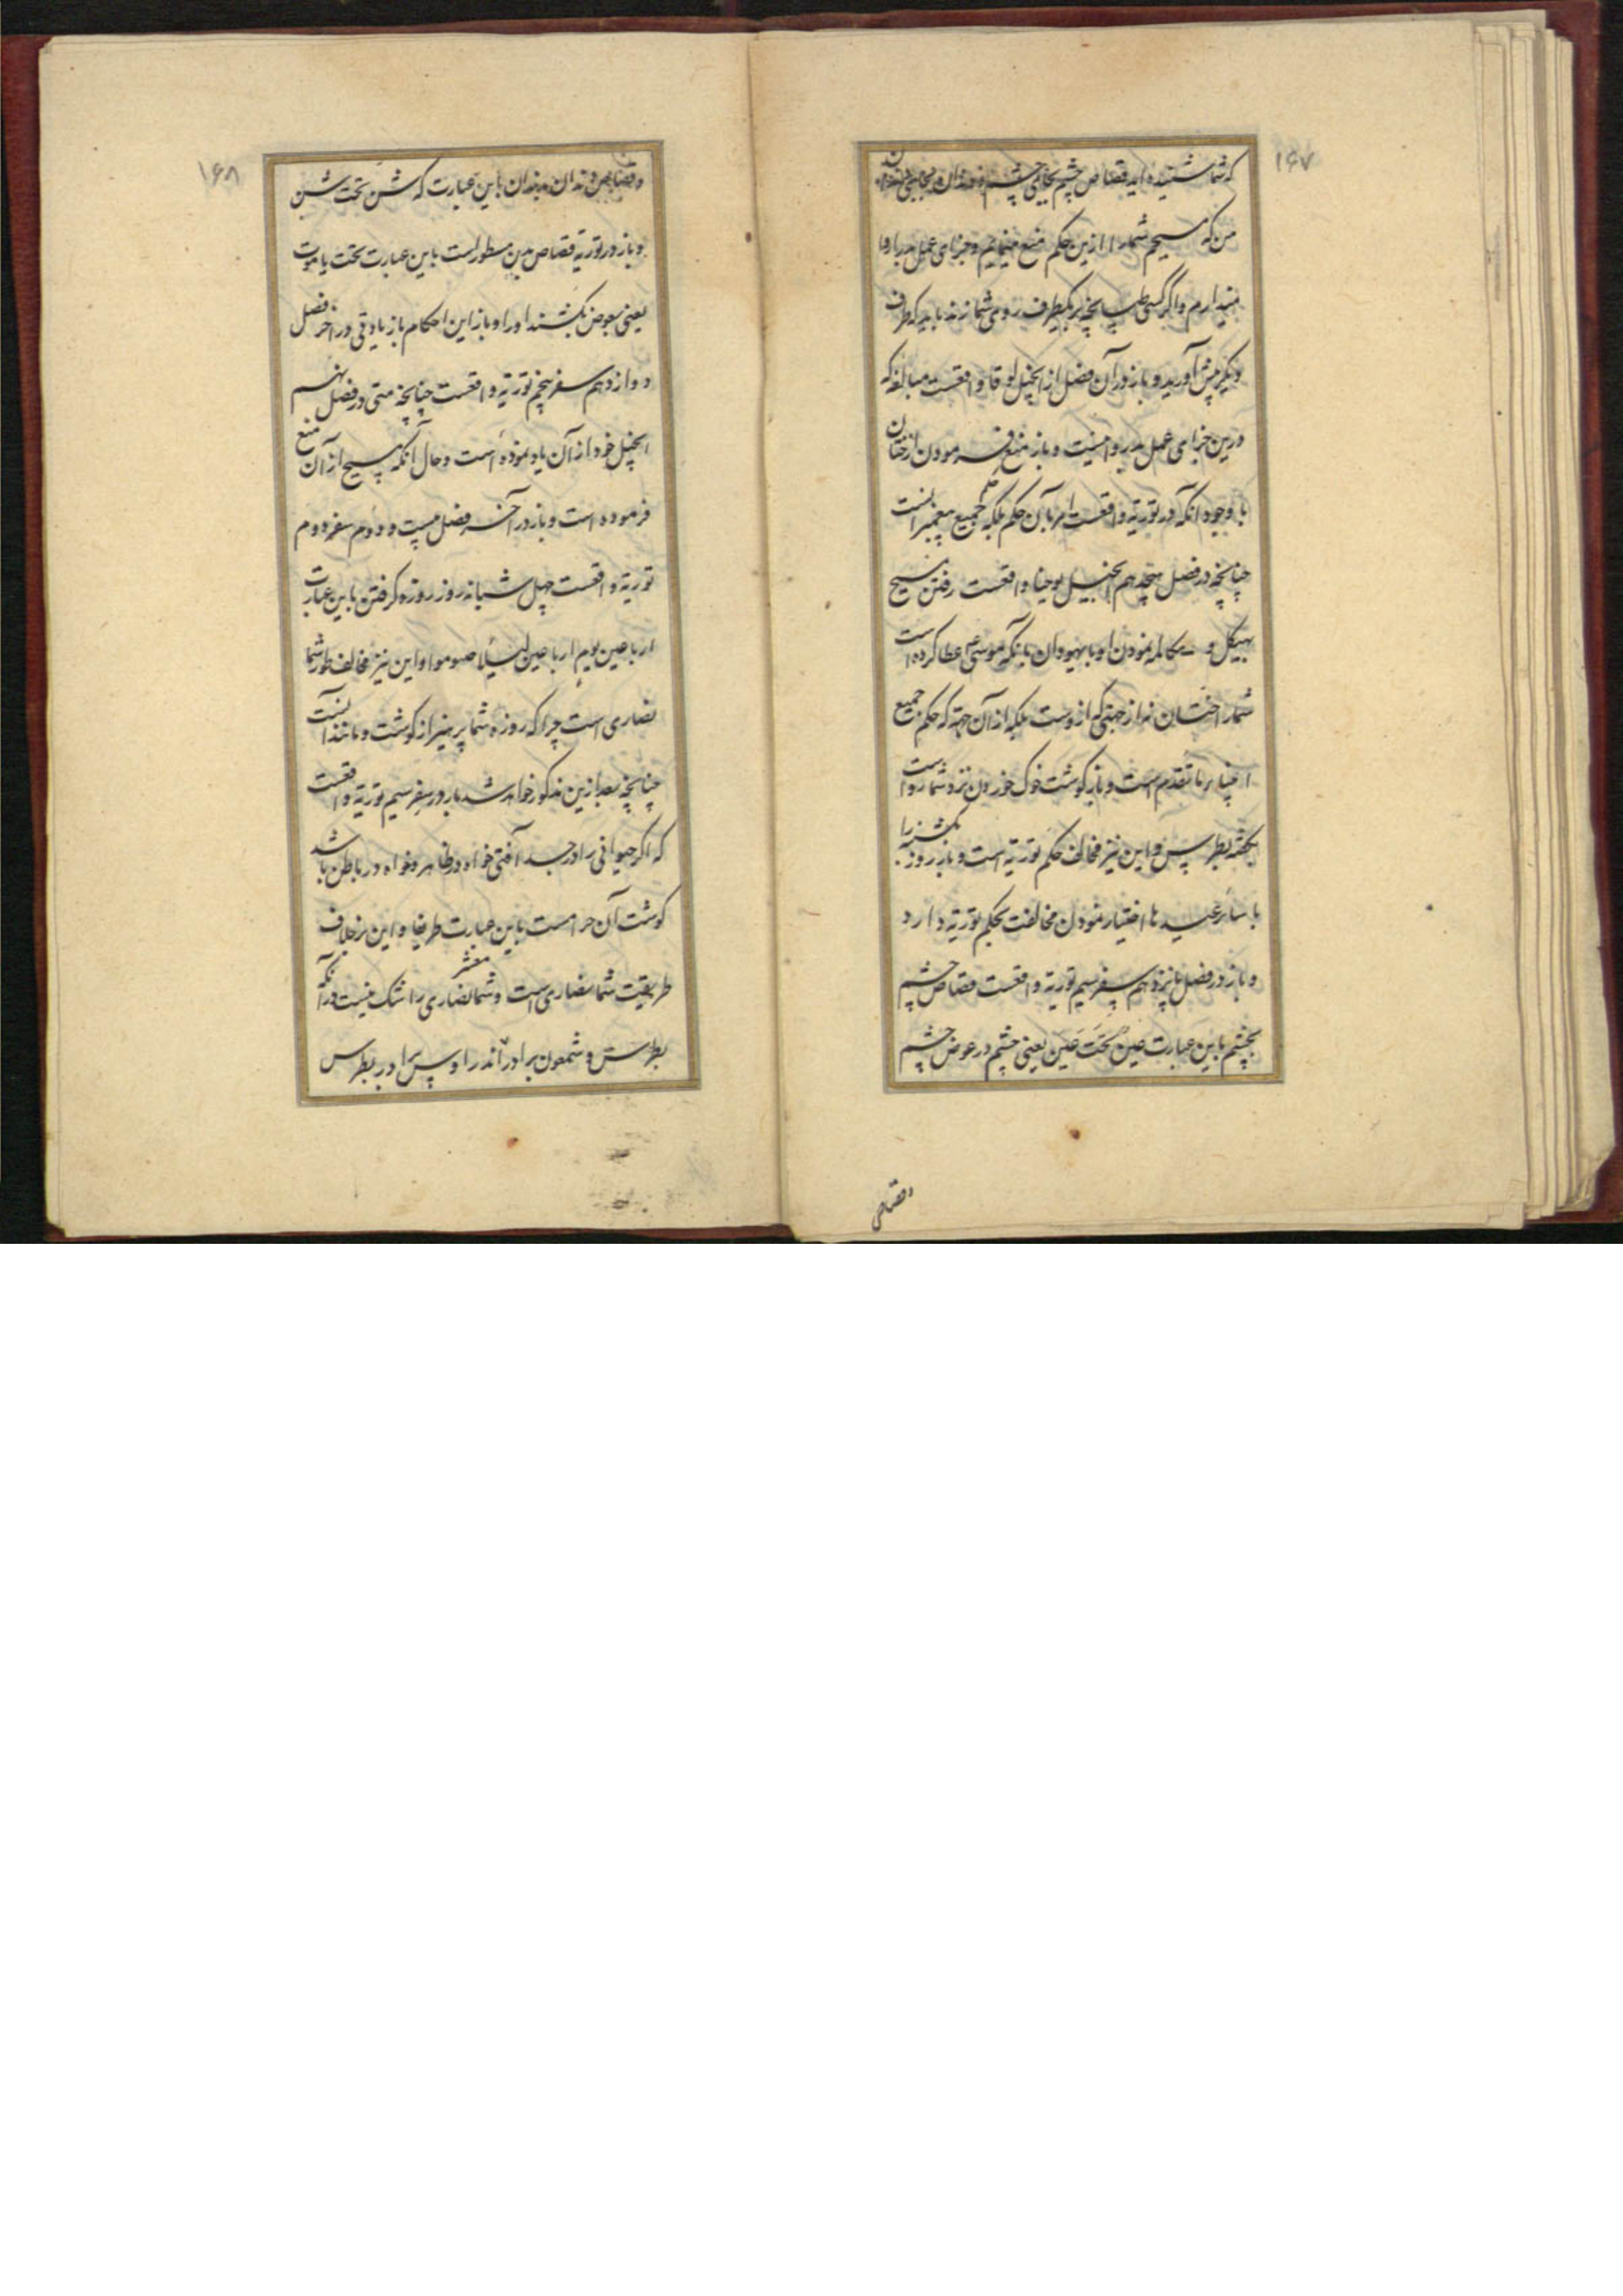 ۱۶۷
که شما شنیده اید قصاص چشم بجای چشم و دندان بجای دندان
من که مسیحم شما را ازین حکم منع مینمایم و جزای عمل بد را روا
نمیدارم و اگر کسی طپانچه بر یکطرف روی شما زند باید که طرف
دیگر پیش آورید و باز در آن فصل از انجیل لوقا واقعست مبالغه که
درین جزای عمل بد روا نیست و باز منع فرمودن از ختان
با وجود آنکه در توریة واقعست امر بآن حکم بلکه حکم جمیع پیغمبرانست
چنانچه در فصل هیجدهم انجیل یوحنا واقعست رفتن مسیح
بهیکل و مکالمه نمودن او با یهودان بانکه موسی عطا کرده است
شما را ختان نه از جهتی که ازوست بلکه از آن جهة که حکم جمیع
انبیاء ما تقدم است و باز گوشت خوک خوردن نزد شما رواست
بگفته بطرس و این نیز مخالف حکم توریة است و باز روز یکشنبه را
با سائر عیدها اختیار نمودن مخالفت بحکم توریة دارد
و باز در فصل پانزدهم سفر سیم توریة واقعست قصاص چشم
بچشم باین عبارت عین تحت عین یعنی چشم در عوض چشم
وقصاص
۱۶۸
وقصاص دندان بدندان باین عبارت که شن تحت شن
و باز در توریة قصاص بدن مسطور است باین عبارت تحت یاموت
یعنی بعوض بکشند او را و باز این احکام باز یادقی در آخر فصل
دوازدهم سفر پنجم توریة واقعست چنانچه متی در فصل نهم
انجیل خود از آن یاد نموده است و حال آنکه مسیح از آن منع
فرموده است و باز در آخر فصل بیست و دوم سفر دوم
توریة واقعست چهل شبانه روز روزه گرفتن باین عبارت
ارباعین یوم ارباعین لیلا صوموا و این نیز مخالف طور شما
نصاری است چرا که روزه شما پرهیز از گوشت و مانند آنست
چنانچه بعد ازین مذکور خواهد شد باز در سفر سیم توریة واقعست
که اگر حیوانی را در جسد آفتی خواه در ظاهر و خواه در باطن باشد
گوشت آن حرامست باین عبارت طریفا و این بر خلاف
طریقت شما نصاری است و شما معشر نصاری را شک نیست در آنکه
بطرس و شمعون برادر اندراوس برادر بطرس